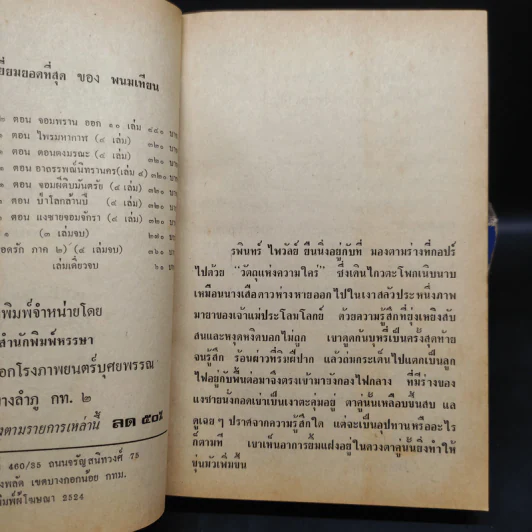 ยี่ยมยอดที่สุด ของ พนมเทียน
๒ ตอน จอมพราน ออก ๑๐ เล่ม ๘๔๐ บาท
๑ ตอน ไพรมหากาฬ (๔ เล่ม) ๓๒๐
๑ ตอน ดอนดงมรณะ (๔ เล่ม) ๓๒๐
๑ ตอน อาถรรพณ์นิทรานคร(เล่ม ๔) ๓๒๐
๑ ตอน จอมผีดิบมันตรัย (๔ เล่ม) ๓๒๐
๑ ตอน ป่าโลกล้านปี (๔ เล่ม) ๓๒๐
๑ ตอน แงซายจอมจักรา (๔ เล่ม) ๓๒๐
๑ (๓ เล่มจบ) ๒๗๐
อดรัก ภาค ๒) (๔ เล่มจบ) ๓๒๐
เล่มเดียวจบ ๖๐
พิมพ์จำหน่ายโดย
สำนักพิมพ์หรรษา
อกโรงภาพยนตร์บุศยพรรณ
างลำภู กท. ๒
งตามรายการเหล่านี้ ลด ๕๐%
460/35 ถนนจรัญสนิทวงศ์ 75
งพลัด เขตบางกอกน้อย กทม.
พิมพ์ผู้โฆษณา 2524
รพินทร์ ไพรวัลย์ ยืนนิ่งอยู่กับที่ มองตามร่างที่กอปร์
ไปด้วย "วัตถุแห่งความใคร่" ซึ่งเดินไกวตะโพกเนิบนาบ
เหมือนนางเสือดาวห่างหายออกไปในเงาสลัวประหนึ่งภาพ
มายาของเจ้าแม่ประโลมโลกย์ ด้วยความรู้สึกที่ยุ่งเหยิงสับ
สนและหงุดหงิดบอกไม่ถูก เขาดูดก้นบุหรี่เป็นครั้งสุดท้าย
จนรู้สึก ร้อนผ่าวที่ริมฝีปาก แล้วถ่มกระเด็นไปแตกเป็นลูก
ไฟอยู่กับพื้นต่อมาจึงตรงเข้ามายังกองไฟกลาง ที่มีร่างของ
แงซายนั่งกอดเข่าเป็นเงาตะคุ่มอยู่ ตาคู่นั้นเหลือบขึ้นสบ แล
ดูเฉย ๆ ปราศจากความรู้สึกใด แต่จะเป็นอุปทานหรืออะไร
ก็ตามที เขาเห็นอาการยิ้มแฝงอยู่ในดวงตาคู่นั้นยิ่งทำให้
ขุ่นมัวเพิ่มขึ้น